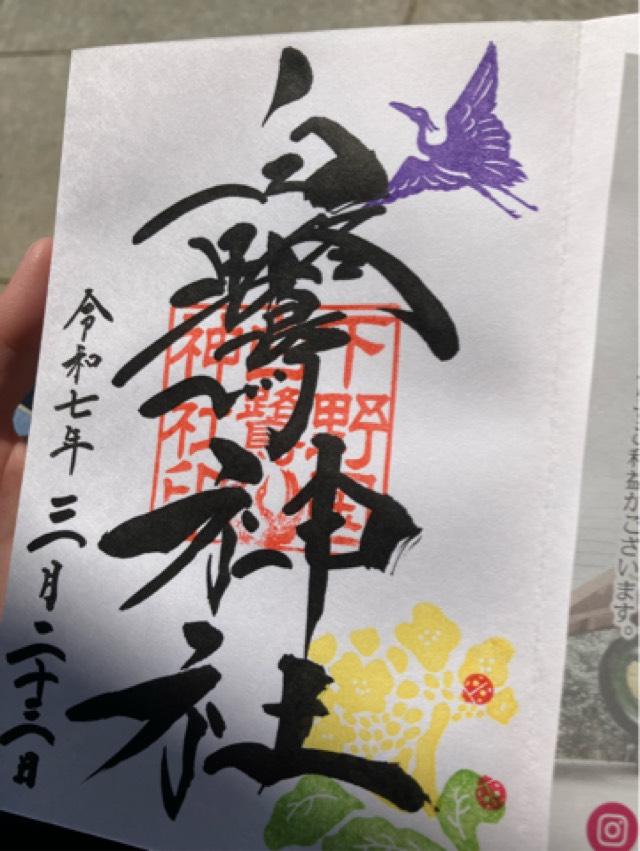 白鷺神社
令和七年三月二十三日
下野国
白鷺
神社印
ご利益がございます。